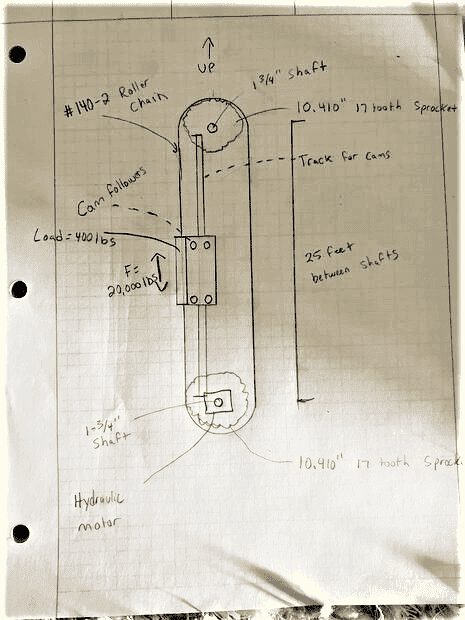 UP
1 3/4" Shaft
#140-2 Roller
Chain
10.410" 17 tooth Sprocket
Track for Cams
Cam followers
Load = 400 lbs
F=
20,000 lbs
25 feet
between shafts
1-3/4"
Shaft
10.410" 17 tooth Sprock
Hydraulic
motor